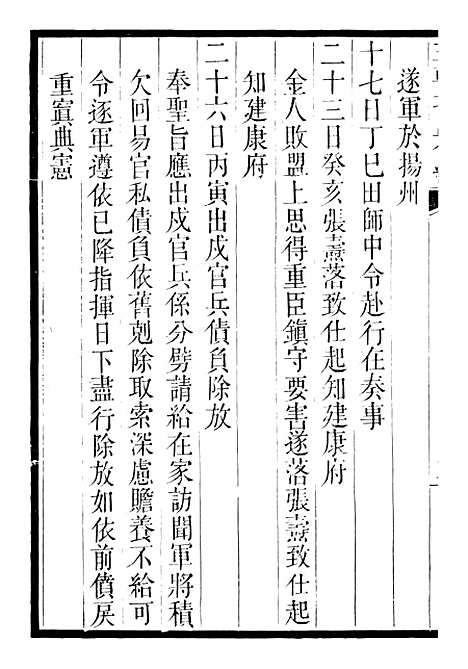 遂軍於揚州
十七日丁巳田師中令赴行在奏事
二十三日癸亥張燾落致仕起知建康府
金人敗盟上思得重臣鎮守要害遂落張燾致仕起
知建康府
二十六日丙寅出戍官兵債負除放
奉聖旨應出戍官兵係分劈請給在家訪聞軍將積
欠回易官私債負依舊剋除取索深慮贍養不給可
令逐軍遵依已降指揮日下盡行除放如依前僨戾
重寘典憲